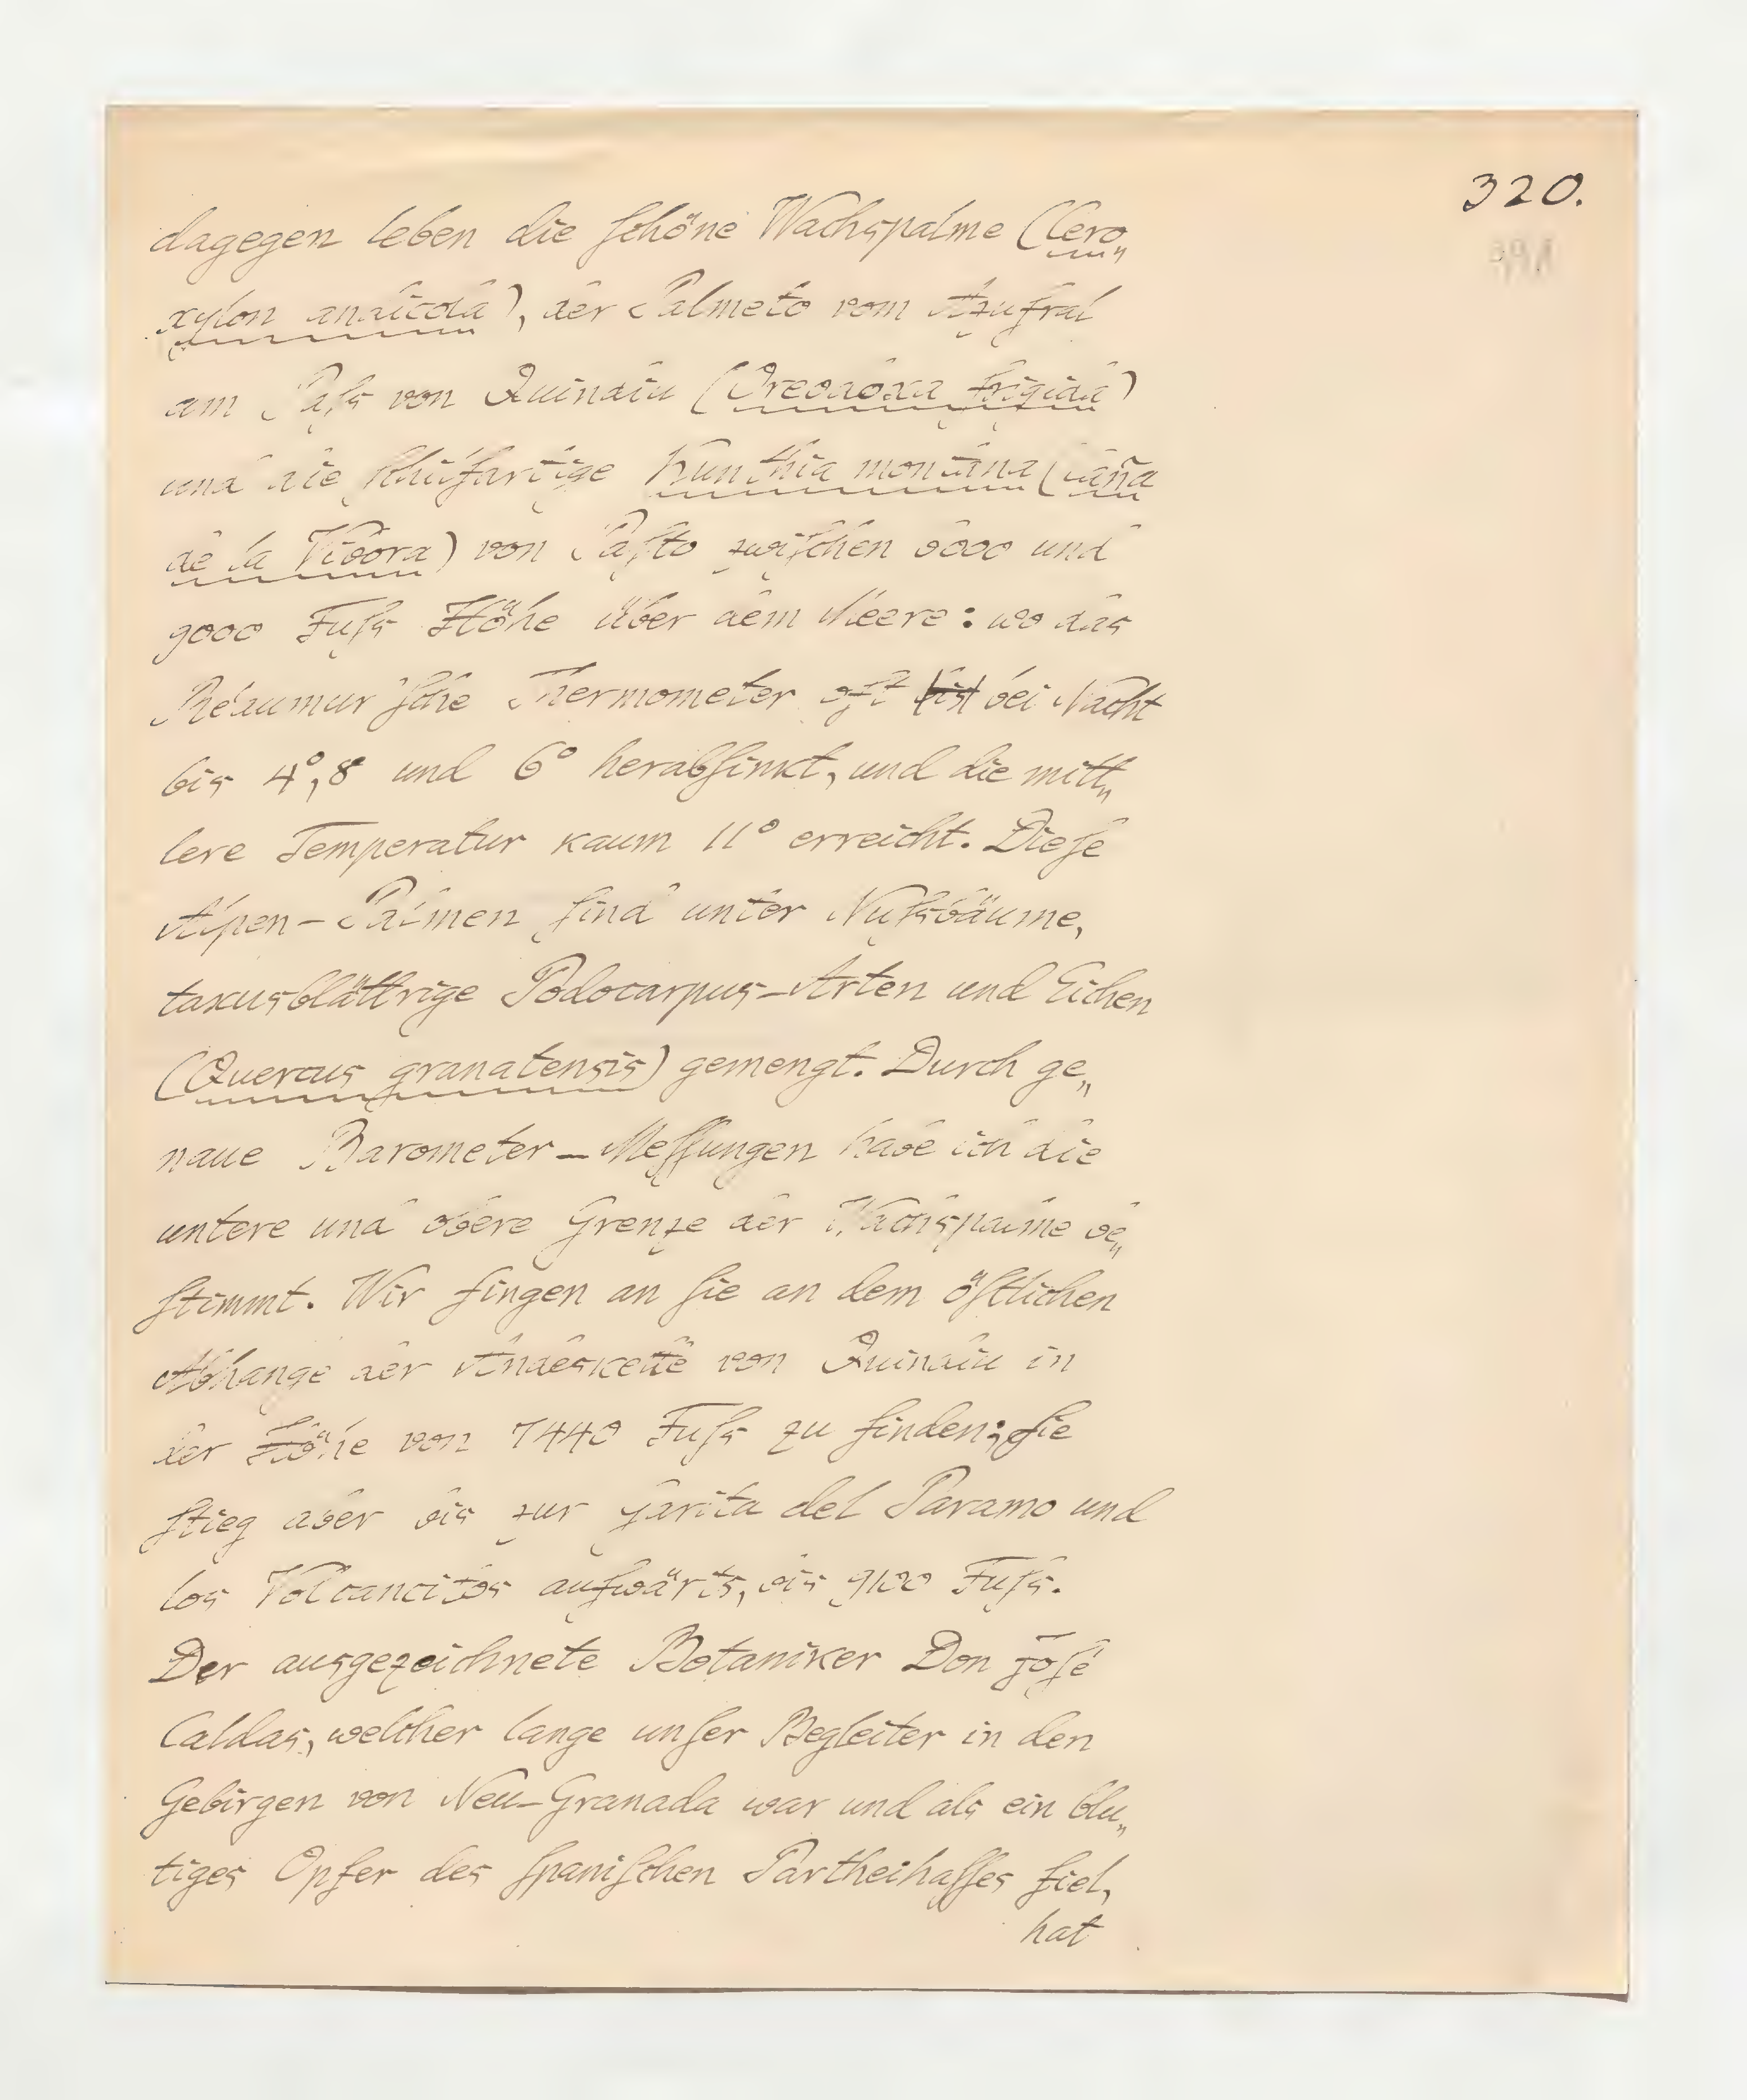 320.
dagegen leben die ſchöne Wachspalme (Cero„
xylon andicola), der Palmeto vom Azufral
am Paſs von Quindiu (Oreodoxa frigida)
und die ſchilfartige Kunthia montana (Caña
de la Vibora) von Paſto zwiſchen 6000 und
9000 Fuſs Höhe über dem Meere: wo das
Réaumur'ſche Thermometer oft bis bei Nacht
bis 4°,8 und 6° herabſinkt, und die mitt„
lere Temperatur kaum 11° erreicht. Dieſe
Alpen-Palmen ſind unter Nuſsbäume,
taxusblättrige Podocarpus-Arten und Eichen
(Quercus granatensis) gemengt. Durch ge„
naue Barometer-Meſſungen habe ich die
untere und obere Grenze der Wachspalme be„
ſtimmt. Wir fingen an ſie an dem öſtlichen
Abhange der Andeskette von Quindiu in
der Höhe von 7440 Fuſs zu finden; ſie
ſtieg aber bis zur Garita del Paramo und
los Volcancitos aufwärts, bis 9100 Fuſs.
Der ausgezeichnete Botaniker Don Joſé
Caldas, welcher lange unſer Begleiter in den
Gebirgen von Neu-Granada war und als ein blu„
tiges Opfer des ſpaniſchen Partheihaſſes fiel,
hat